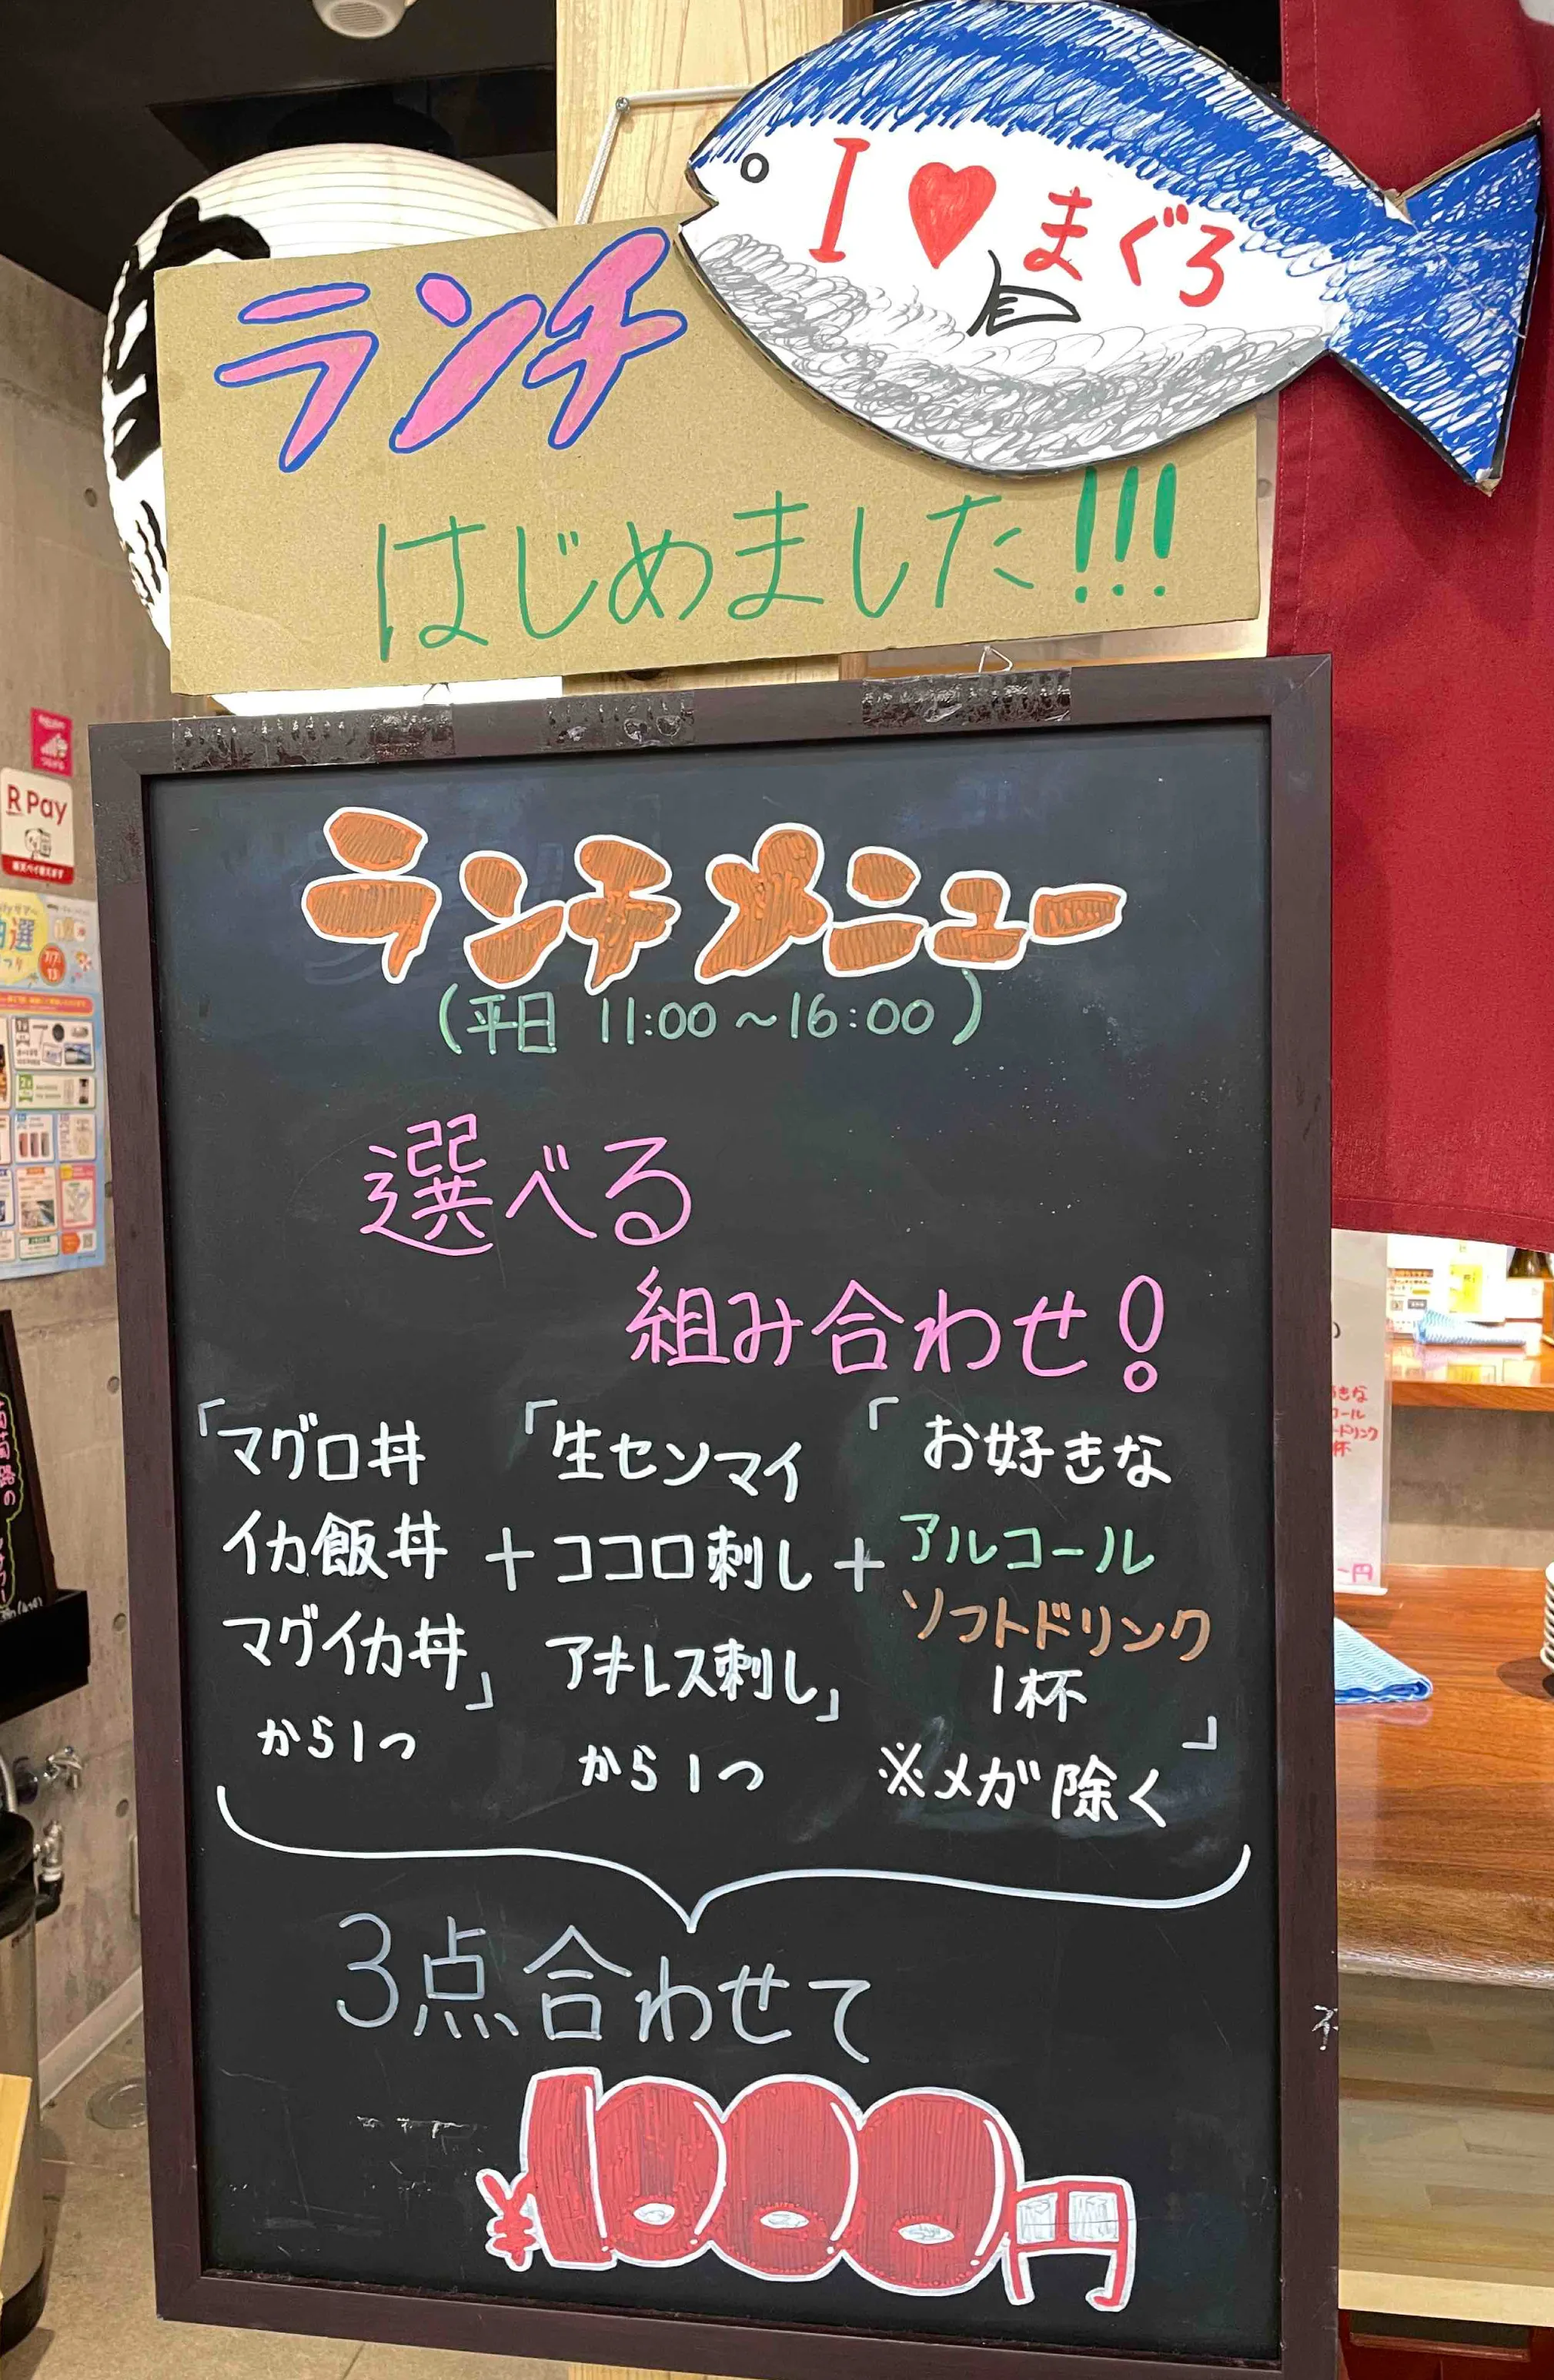 I ♥ まぐろ
ランチ
はじめました!!!
R Pay
ランチメニュー
(平日 11:00~16:00)
選べる
組み合わせ!
「マグロ丼
イカ飯丼
マグイカ丼」
から1つ
+
「生センマイ
ココロ刺し
アキレス刺し」
から1つ
+
「お好きな
アルコール
ソフトドリンク
1杯」
※メガ除く
3点合わせて
¥1000円